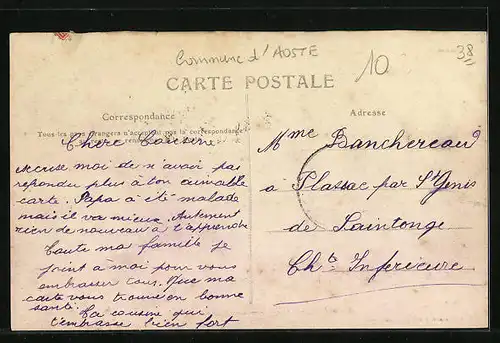 Commune d'AOSTE
10
38
CARTE POSTALE
Correspondance
Tous les pays étrangers n'acceptent pas la correspondance
Adresse
Chère Cousine
excuse moi de n'avoir pas
repondu plus à ton aimable
carte. Papa a été malade
mais il va mieux. Autrement
rien de nouveau a t'apprendre
Toute ma famille se
joint à moi pour vous
embrasser tous. Que ma
carte vous trouve en bonne
santé.
Ta cousine qui
t'embrasse bien fort
Mme Banchereau
à Plassac par St Genis
de Saintonge
Chte Inférieure